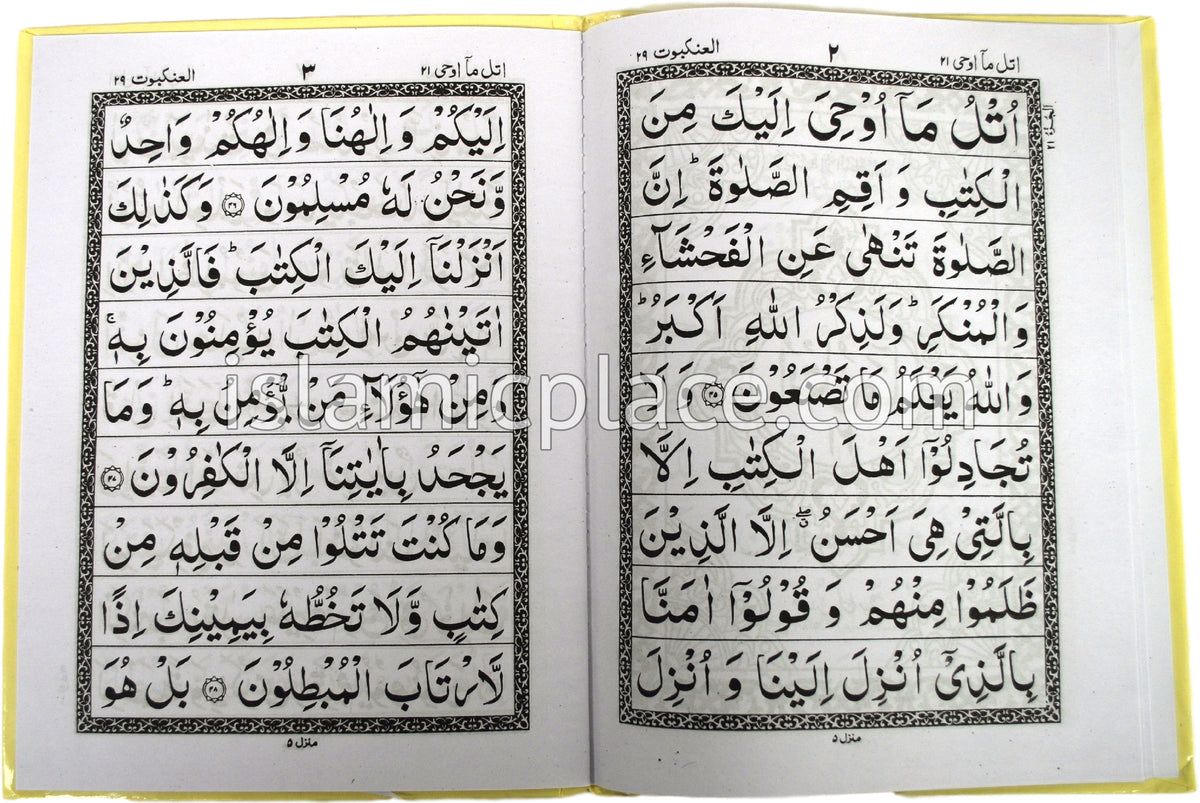 اتل مآ اوحی ۲۱
۲
العنکبوت ۲۹
الجزء ۲۱
اُتْلُ مَآ اُوْحِیَ اِلَیْكَ مِنَ
الْكِتٰبِ وَ اَقِمِ الصَّلٰوةَ ؕ اِنَّ
الصَّلٰوةَ تَنْهٰی عَنِ الْفَحْشَآءِ
وَ الْمُنْكَرِ ؕ وَلَذِكْرُ اللّٰهِ اَكْبَرُ ؕ
وَ اللّٰهُ یَعْلَمُ مَا تَصْنَعُوْنَ ۴۵ وَ لَا
تُجَادِلُوْۤا اَهْلَ الْكِتٰبِ اِلَّا
بِالَّتِیْ هِیَ اَحْسَنُ ۖۗ اِلَّا الَّذِیْنَ
ظَلَمُوْا مِنْهُمْ وَ قُوْلُوْۤا اٰمَنَّا
بِالَّذِیْۤ اُنْزِلَ اِلَیْنَا وَ اُنْزِلَ
منزل ۵
اتل مآ اوحی ۲۱
۳
العنکبوت ۲۹
اِلَیْكُمْ وَ اِلٰهُنَا وَ اِلٰهُكُمْ وَاحِدٌ
وَّ نَحْنُ لَهٗ مُسْلِمُوْنَ ۴۶ وَ كَذٰلِكَ
اَنْزَلْنَاۤ اِلَیْكَ الْكِتٰبَ ؕ فَالَّذِیْنَ
اٰتَیْنٰهُمُ الْكِتٰبَ یُؤْمِنُوْنَ بِهٖ ۚ
وَ مِنْ هٰۤؤُلَآءِ مَنْ یُّؤْمِنُ بِهٖ ؕ وَ مَا
یَجْحَدُ بِاٰیٰتِنَاۤ اِلَّا الْكٰفِرُوْنَ ۴۷
وَ مَا كُنْتَ تَتْلُوْا مِنْ قَبْلِهٖ مِنْ
كِتٰبٍ وَّ لَا تَخُطُّهٗ بِیَمِیْنِكَ اِذًا
لَّارْتَابَ الْمُبْطِلُوْنَ ۴۸ بَلْ هُوَ
منزل ۵
islamicplace.com